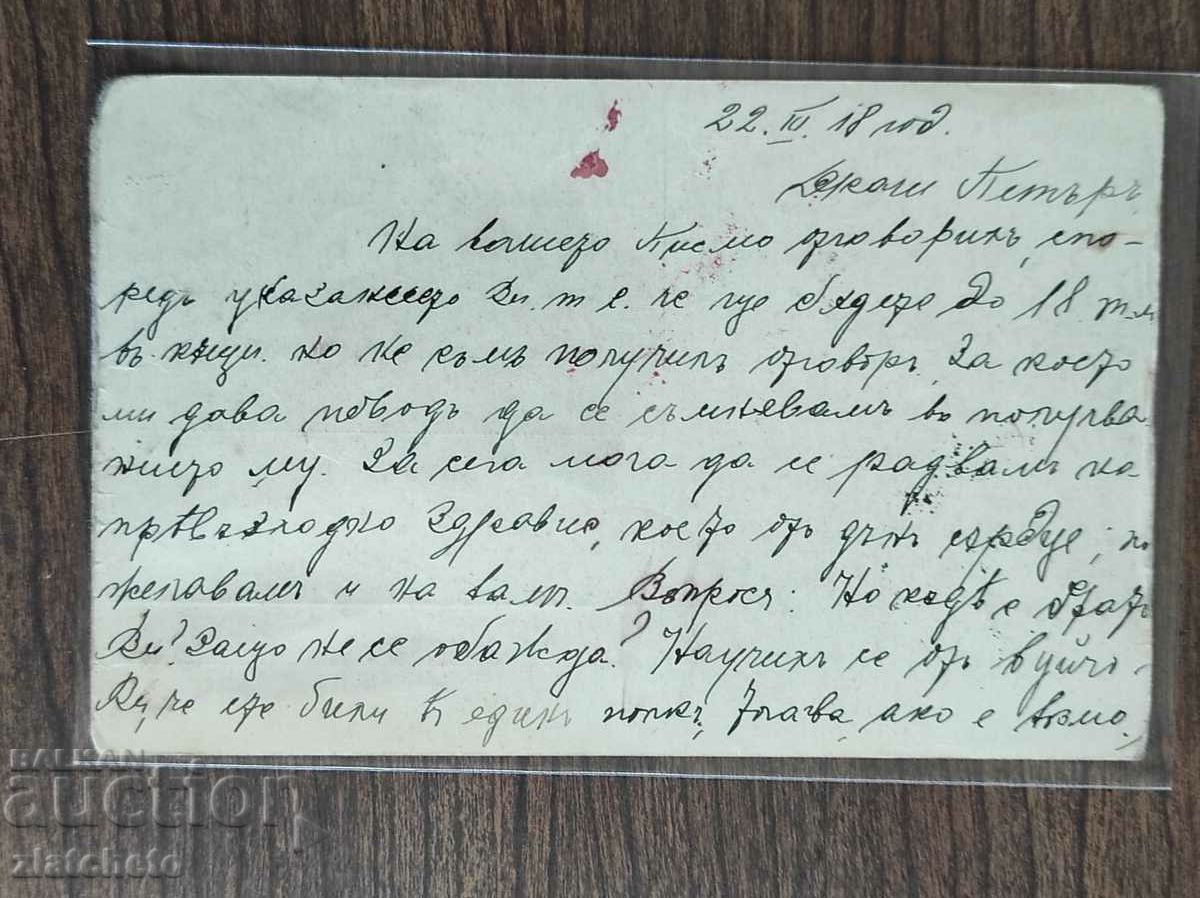 22.III.18 год.
Джоги Петъръ
На вашето Писмо отговорихъ, спо-
редъ указанието Ви. т. е. че ще бѫдете до 18 т.м
въ кѫщи. но не съмъ получилъ отговоръ, За което
ми дава поводъ да се съмнявамъ въ получва
нието му. За сега мога да се радвамъ на
прѣвъзходно Здравие, което отъ дънъ сърдце, по
желавамъ и на вамъ. Въпросъ: Но кѫдѣ е братъ
Ви? Защо не се обажда? Научихъ се отъ вуйчо
Ви, че сте били въ единъ полкъ, тогава, ако е възмо,
BALKAN
auction
zlatcheto